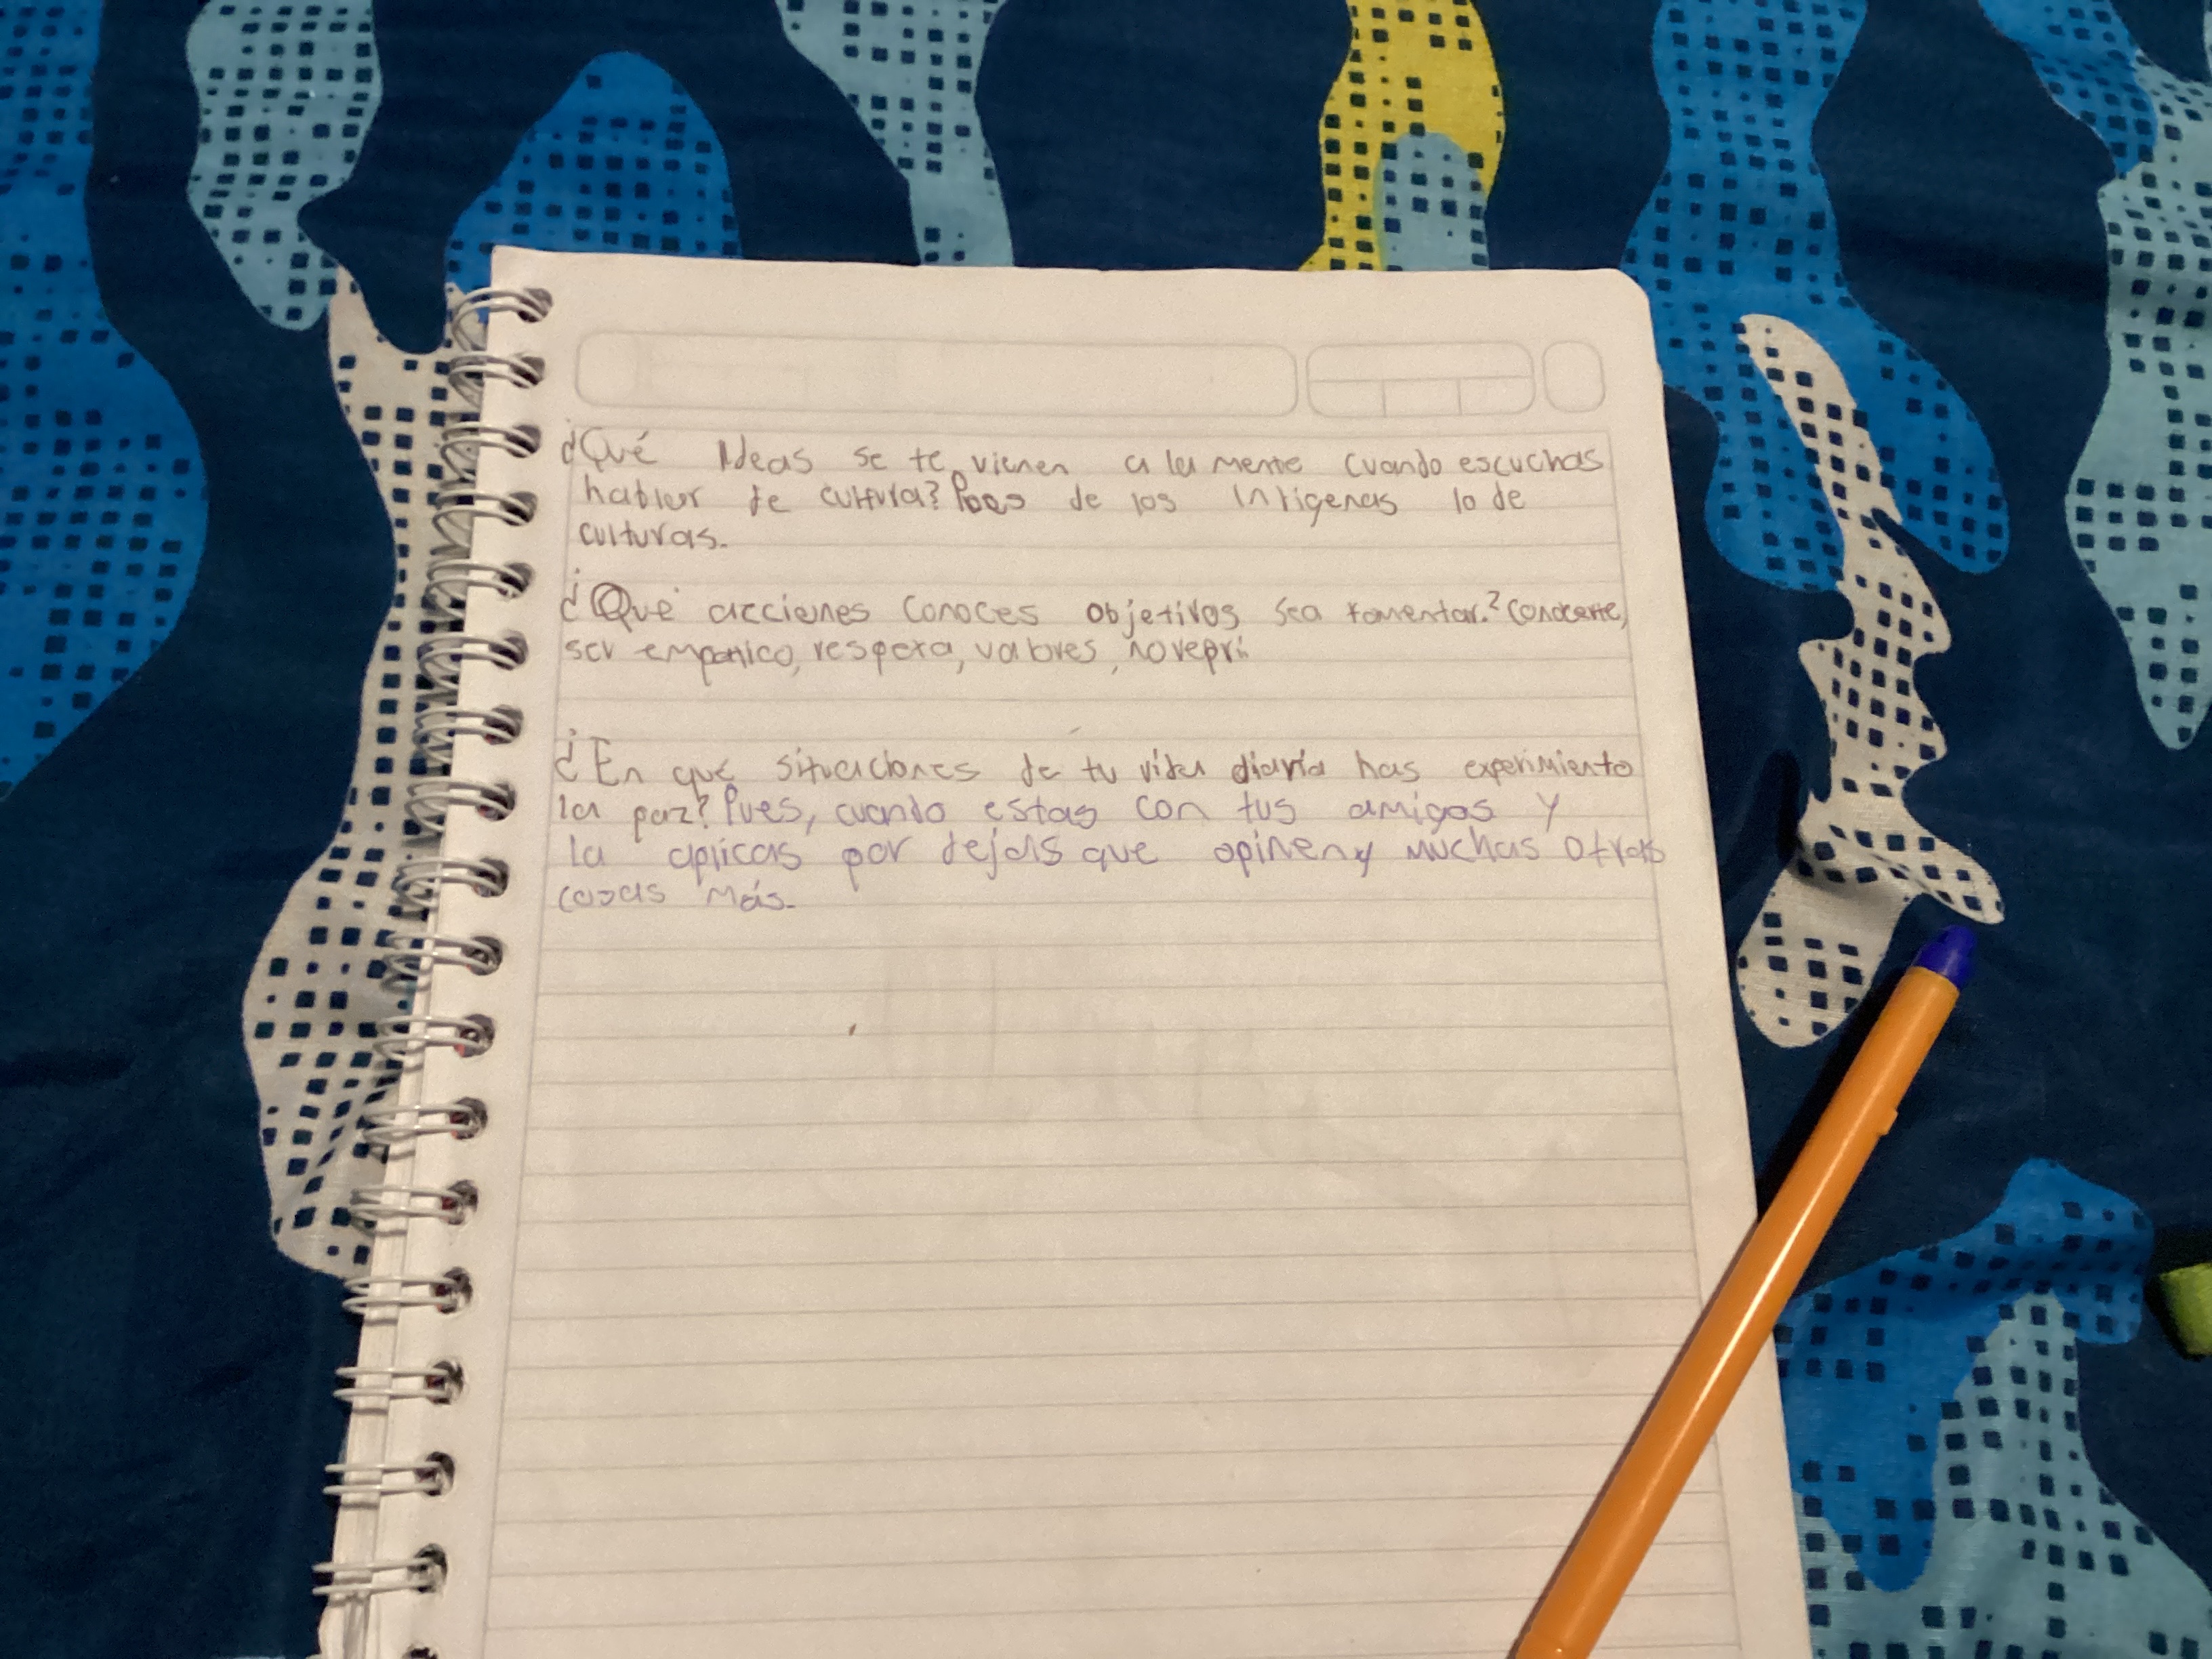 ¿Qué Ideas se te vienen a la mente cuando escuchas
hablar de cultura? Pues de los indigenas lo de
culturas.
¿Que acciones conoces objetivos sea fomentar.? Conocerte,
ser empatico, respeto, valores, no repri
¿En qué situaciones de tu vida diaria has experimiento
la paz? Pues, cuando estas con tus amigos y
la aplicas por dejals que opinen y muchas otras
cosas más.